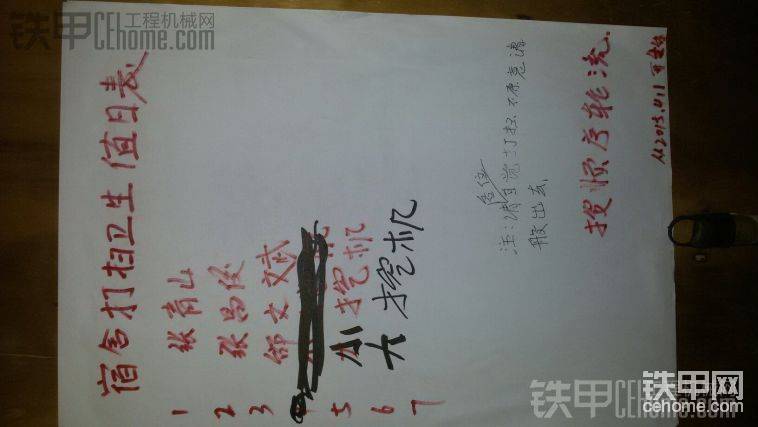 铁甲 工程机械网
CEhome.com
宿舍打扫卫生值日表
1 张青山
2 张昌俊
3 邰文斌
5 小挖机
6 大挖机
7
注:请自觉打扫,不愿意请
搬出去
按顺序轮流.
从2015.4.1
铁甲CEhome.com
铁甲网
cehome.com